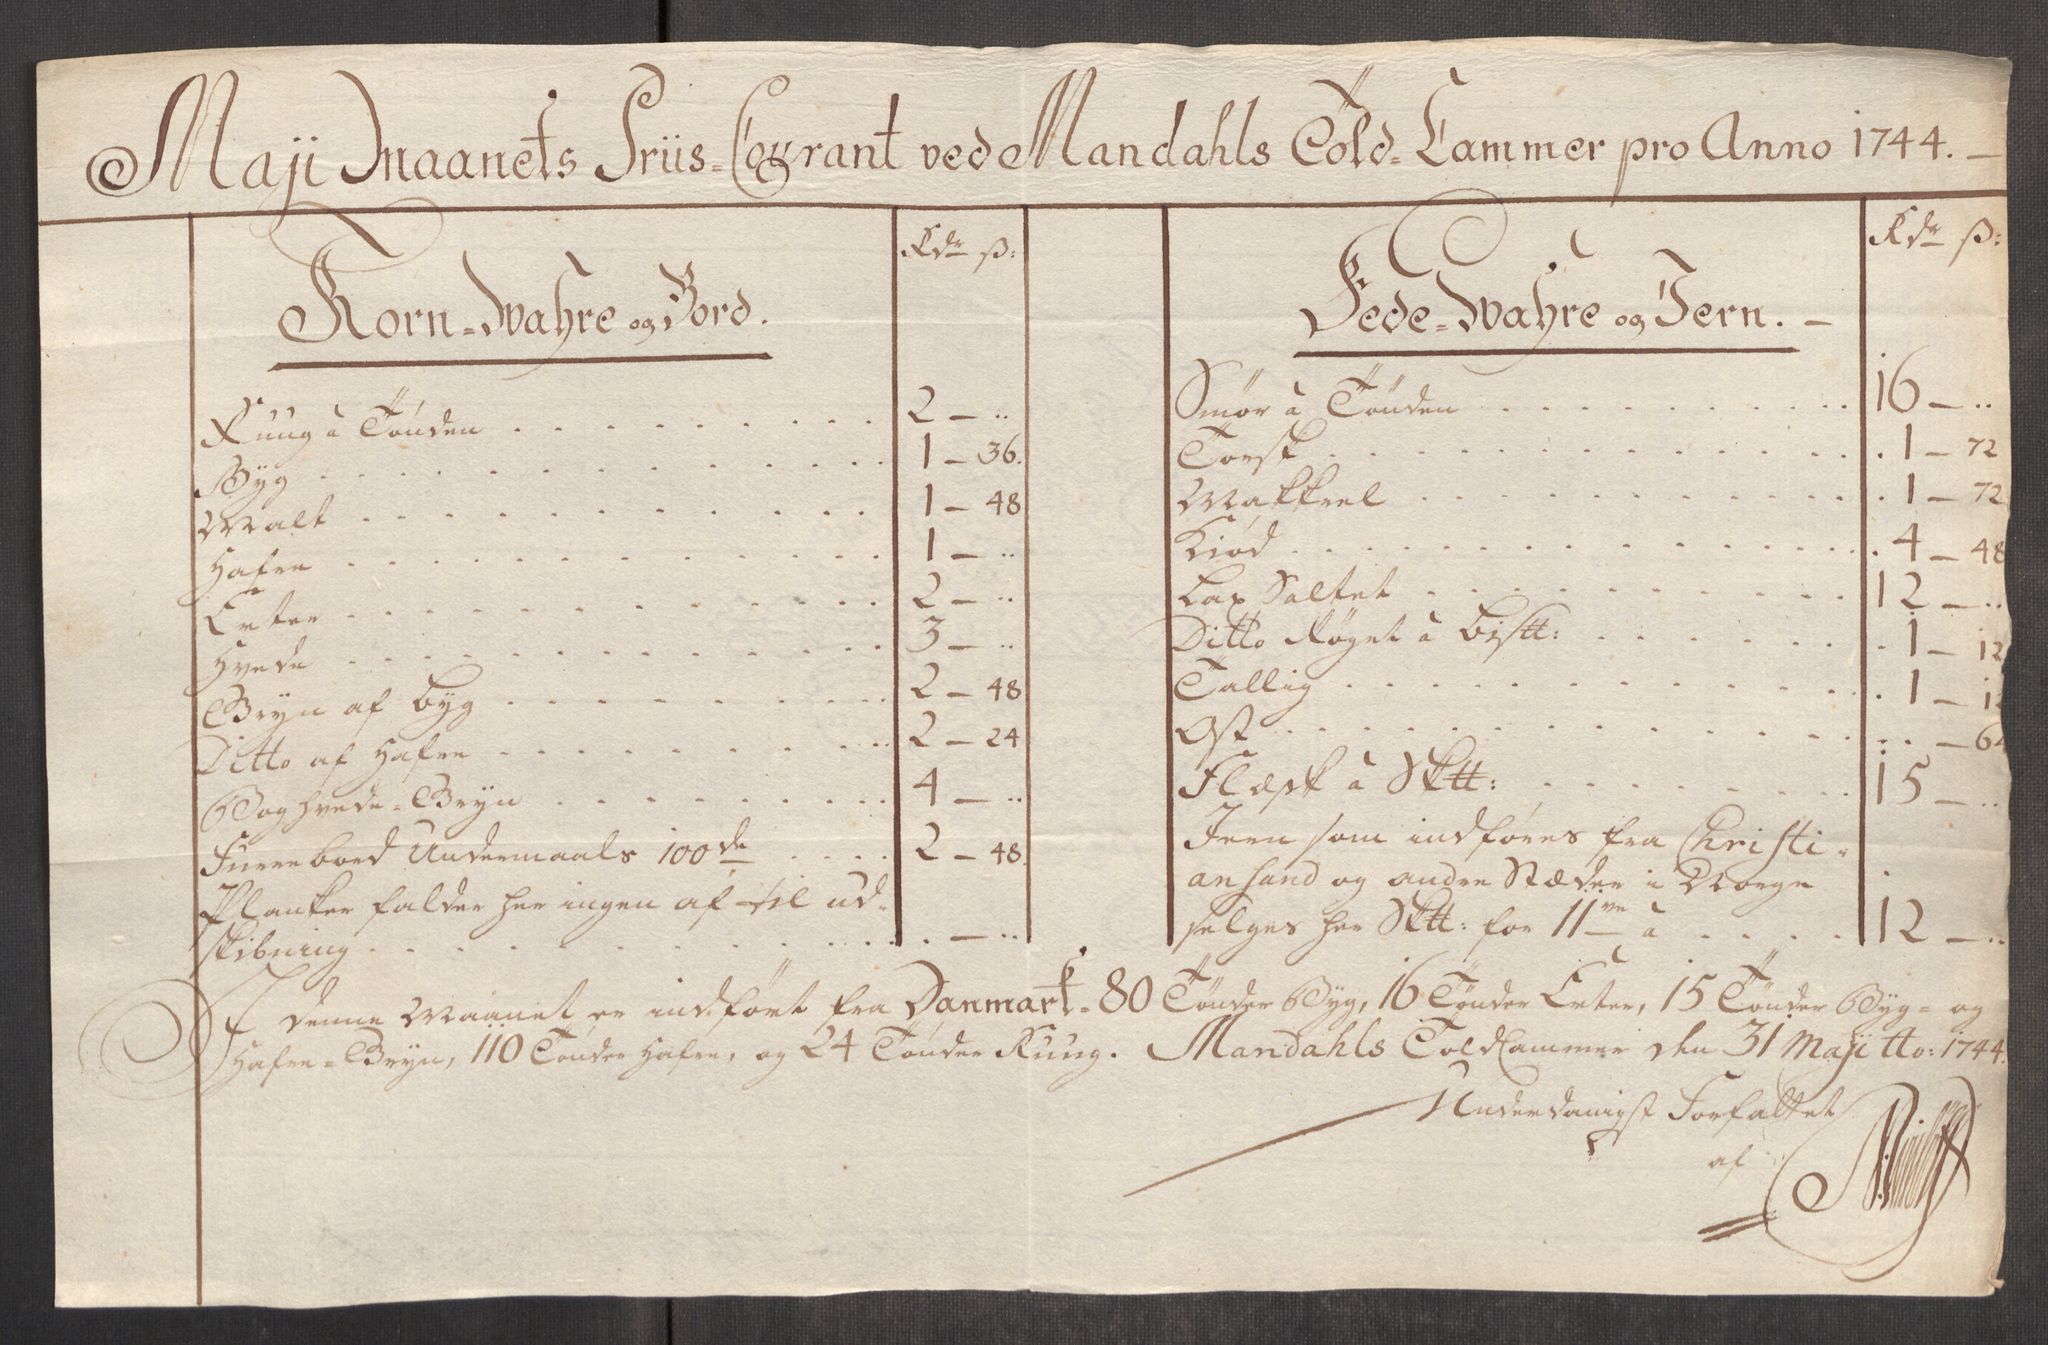 Maji Maanets Priis-Courant ved Mandahls Told-Cammer pro Anno 1744.
Rdr ß:
Korn-Wahre og Bord.
Ruug à Tönden 2 - ..
Byg 1 - 36.
Malt 1 - 48
Hafre 1 - ..
Erter 2 - ..
Hvede 3 - ..
Gryn af byg 2 - 48
Ditto af Hafre 2 - 24
Boghvede-Gryn 4 - ..
Furrebord Undermaals 100de 2 - 48.
Planker falder her ingen af til ud-
skibning . - ..
Rdr ß:
Fede-Wahre og Jern.
Smör à Tönden 16 - ..
Torsk 1 - 72
Makkrel 1 - 72
Kiöd 4 - 48
Lax Saltet 12 - ..
Ditto Röget à bistt: 1 - 12
Tallig 1 - 12
Ost .. - 64
Flæsk à Sktt: 15 - ..
Jern som indföres fra Christi-
ansand og andre Stæder i Norge
selges her Sktt: for 11ve à 12 - ..
I denne Maanet er indfört fra Danmark- 80 Tönder Byg, 16 Tönder Erter, 15 Tönder Byg- og
Hafre-Gryn, 110 Tönder Hafre, og 24 Tönder Ruug. Mandahls ToldCammer den 31 Maji Ao: 1744.
Underdanigst Forfattet
af